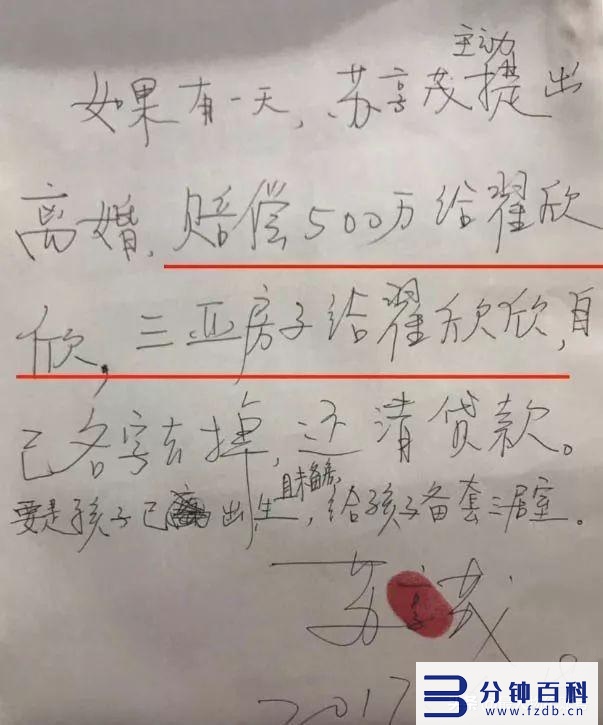 主动
如果有一天,苏享茂提出
离婚,赔偿500万给翟欣
欣,三亚房子给翟欣欣,自
己名字去掉,还清贷款。
且未备房,
要是孩子已出生,给孩子备套三居室。
苏享茂
2017
分钟百科
www.fzdb.cn